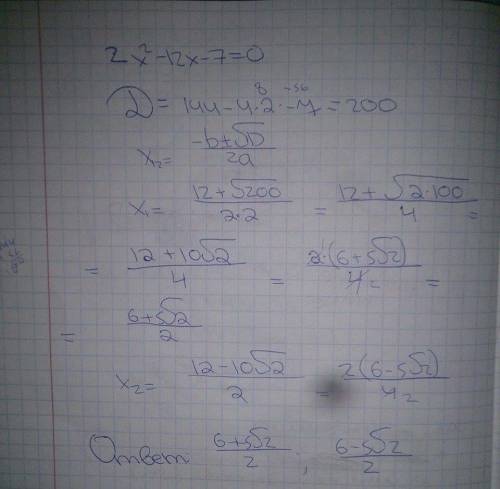 2x²-12x-7=0
D = 144-4·2·-7=200
8 -56
x₁₂= (-b±√D)/2a
x₁= (12+√200)/(2·2) = (12+√(2·100))/4 =
= (12+10√2)/4 = 2·(6+5√2)/4 2 =
= (6+5√2)/2
x₂= (12-10√2)/2 = 2(6-5√2)/4 2
Ответ (6+5√2)/2 ; (6-5√2)/2